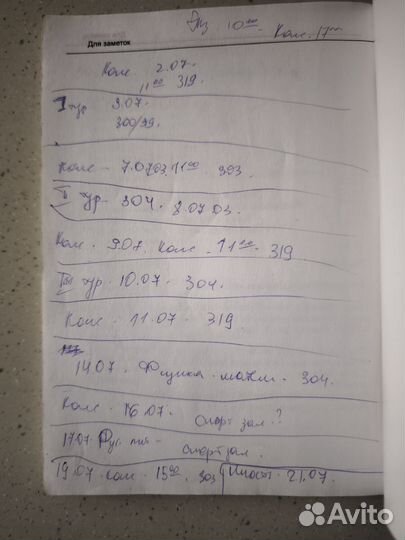 Экз 10⁰⁰ Конс. 17⁰⁰
Для заметок
Конс 2.07.
11⁰⁰ 319.
I тур 3.07.
300/
Конс - 7.07.03 11⁰⁰ 303
II тур - 304. 8.07.03.
Конс. 9.07. Конс - 11⁰⁰. 319
III тур. 10.07 - 304.
Конс. 11.07 - 319
14.07. Физика - 304.
Конс - 16.07. Спорт зал.?
17.07. Рус. - спортзал.
19.07 конс - 15⁰⁰. 303 21.07.
Avito